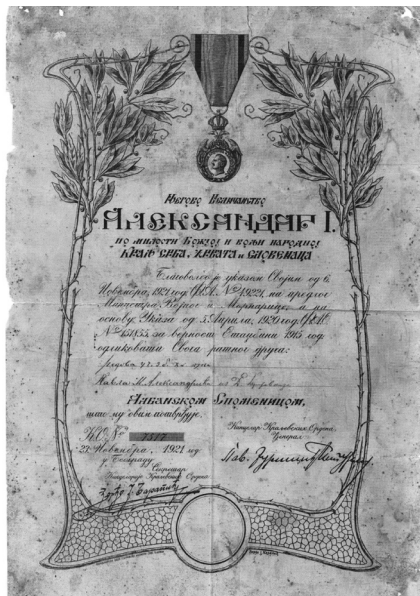 Његово Величанство
АЛЕКСАНДАР I.
по милости Божјој и вољи народној
КРАЉ СРБА, ХРВАТА и СЛОВЕНАЦА
Благоволео је указом Својим од 6
Новембра, 1921 год. Ф.А. № 1922, на предлог
Министра Војног и Морнарице, а на
основу Указа од 5. Априла, 1920 год.
за верност Отаџбини 1915 год.
одликовати Свога ратног друга:
Павла К. Александрића из
АЛБАНСКОМ СПОМЕНИЦОМ,
што му овим потврђује.
Канцелар Краљевских Ордена
Ђенерал
К.О. №
Новембра, 1921 год.
у Београду
Секретар
Канцеларије Краљевских Ордена